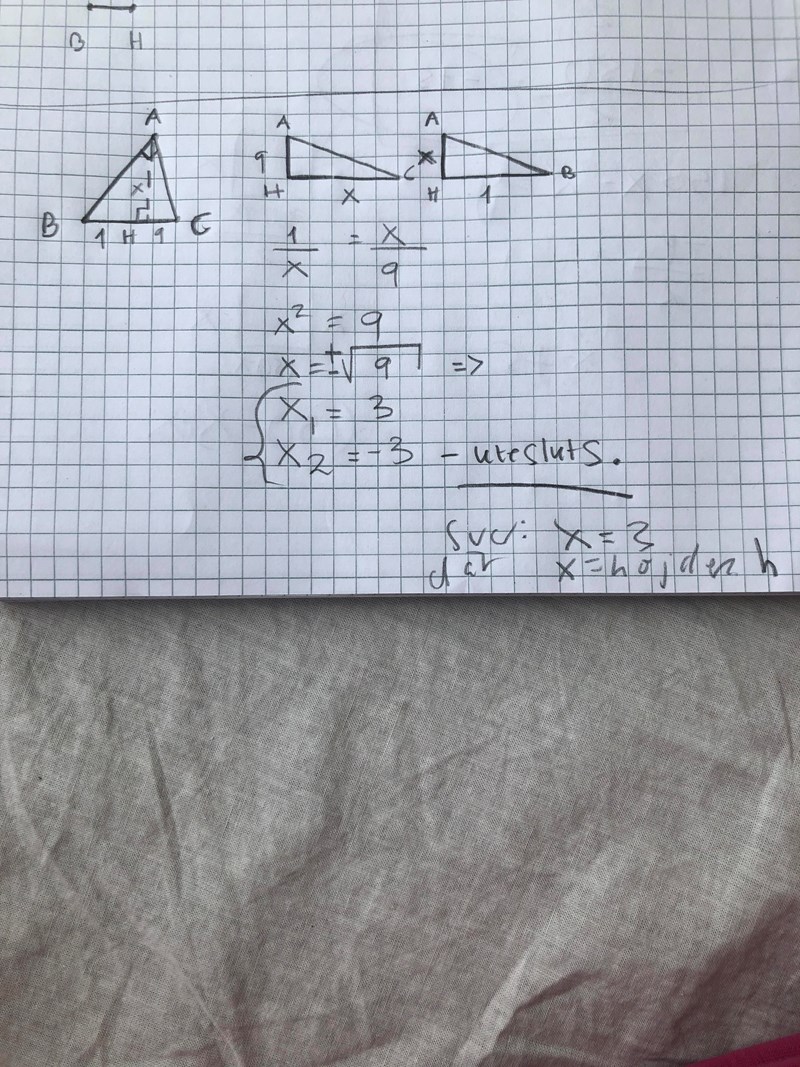 B H
A
x
B 1 H 9 C
A
9
H x C
A
x
H 1 B
1/x = x/9
x² = 9
x = ±√9 =>
x₁ = 3
x₂ = -3 - utesluts.
Svar: x = 3
där x = höjden h